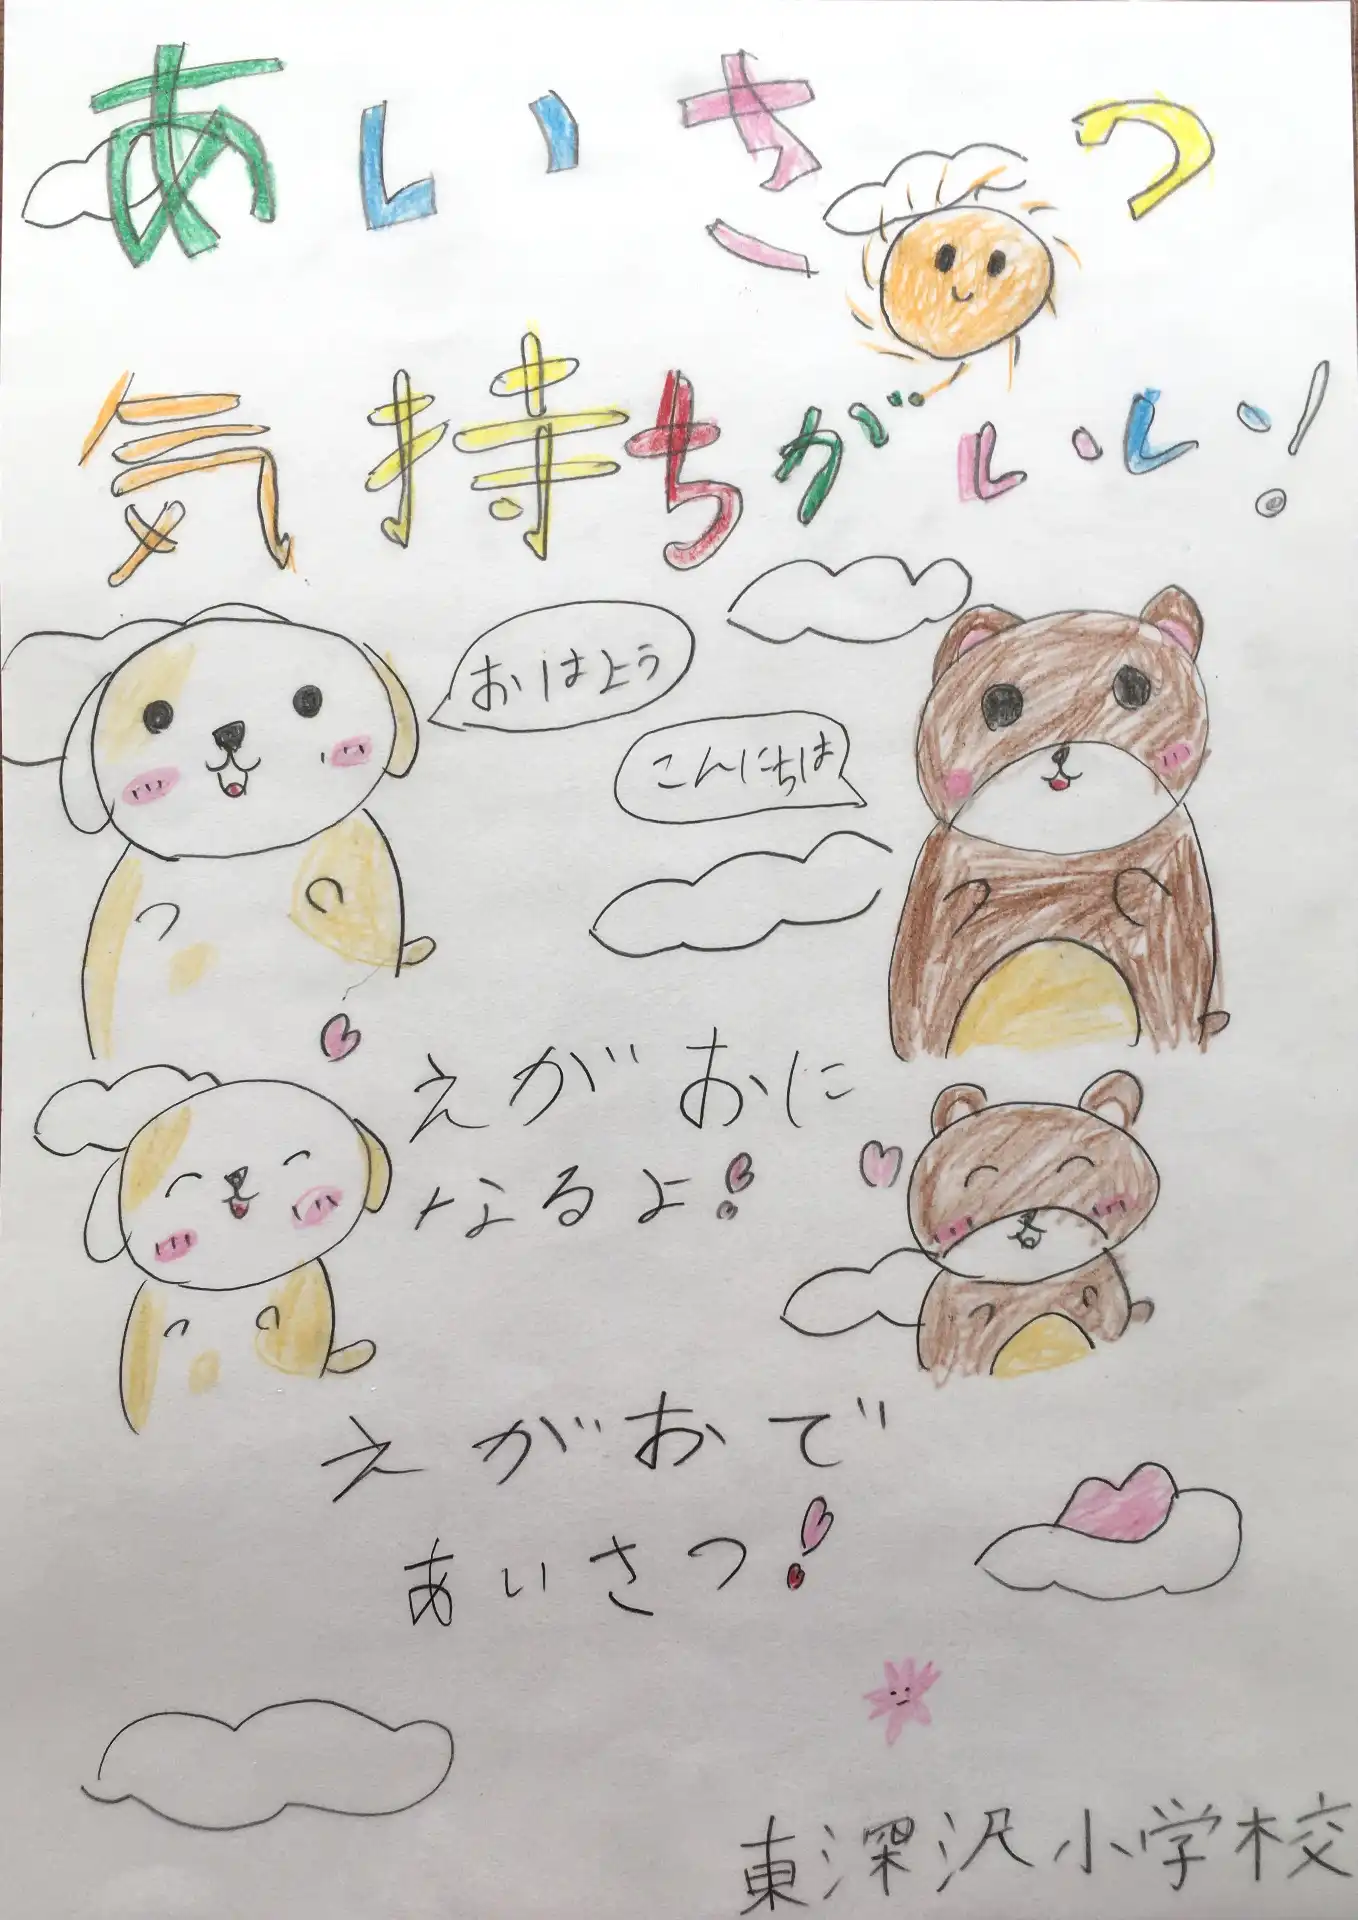 あいさつ
気持ちがいい!
おはよう
こんにちは
えがおに
なるよ!
えがおで
あいさつ!
東深沢小学校